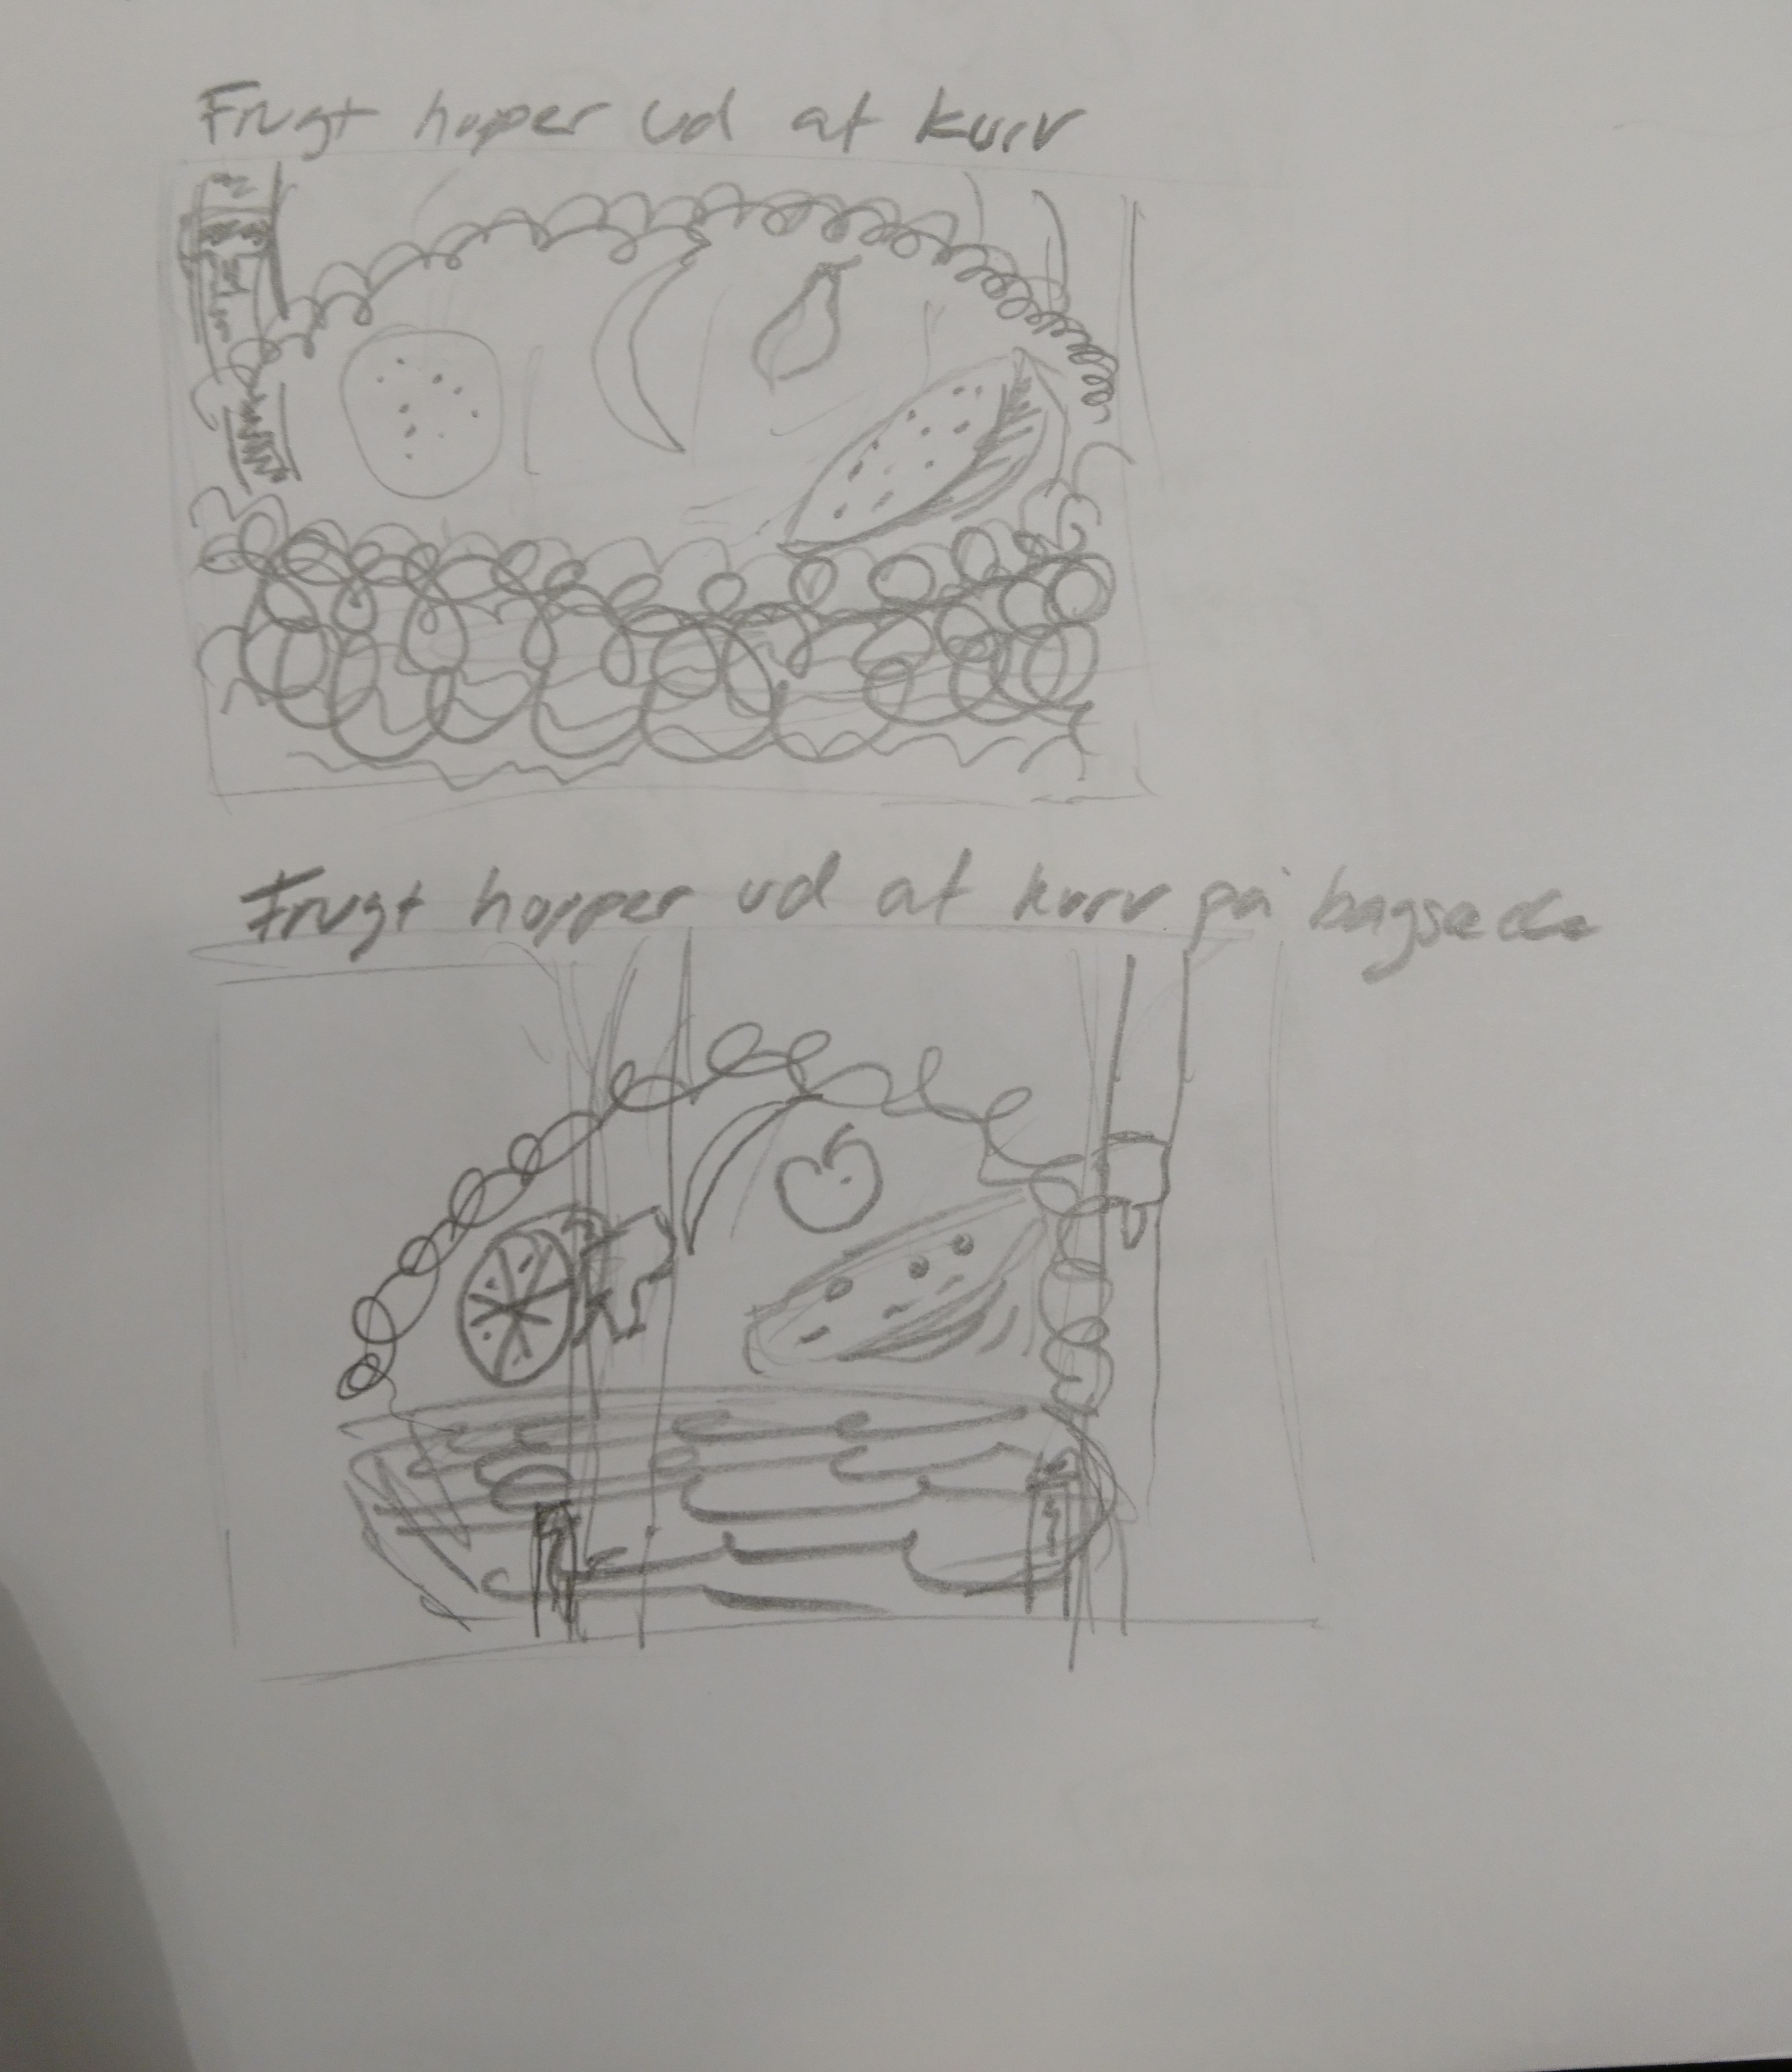 Frugt hopper ud af kurv
Frugt hopper ud af kurv på bagsæde